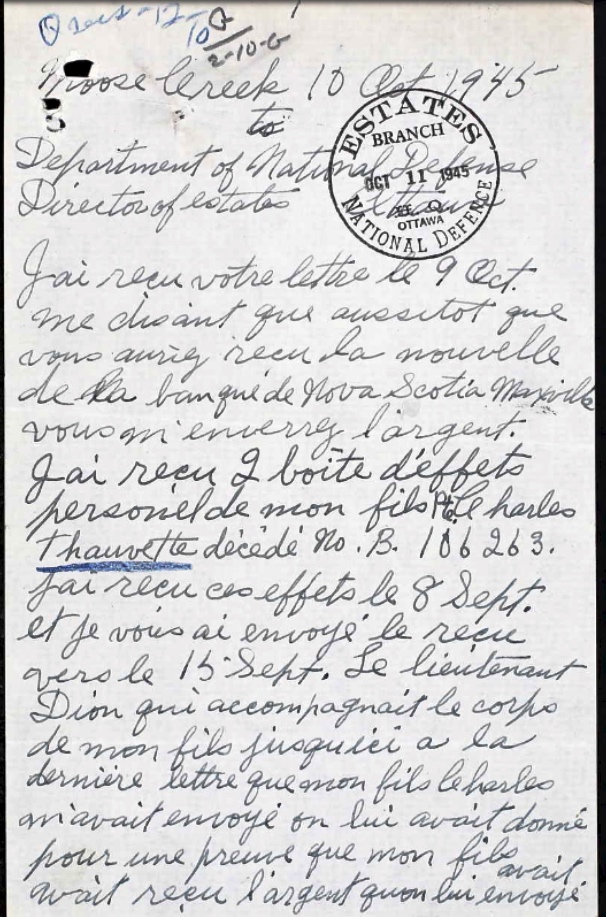 Moose Creek 10 Oct 1945
to
Department of National Defense
Director of estates Ottawa
ESTATES
BRANCH
OCT 11 1945
OTTAWA
NATIONAL DEFENCE
J'ai reçu votre lettre le 9 Oct.
me disant que aussitot que
vous auriez recu la nouvelle
de la banque de Nova Scotia Maxville
vous m'enverrez l'argent.
J'ai reçu 2 boîte d'éffets
personel de mon fils Pte. Charles
Thauvette décédé No. B. 106263.
J'ai recu ces effets le 8 Sept.
et je vous ai envoyé le recu
vers le 15 Sept. Le lieutenant
Dion qui accompagnait le corps
de mon fils jusqu'ici a la
dernière lettre que mon fils Charles
m'avait envoyé on lui avait donné
pour une preuve que mon fils
avait reçu l'argent quon lui avait envoyé